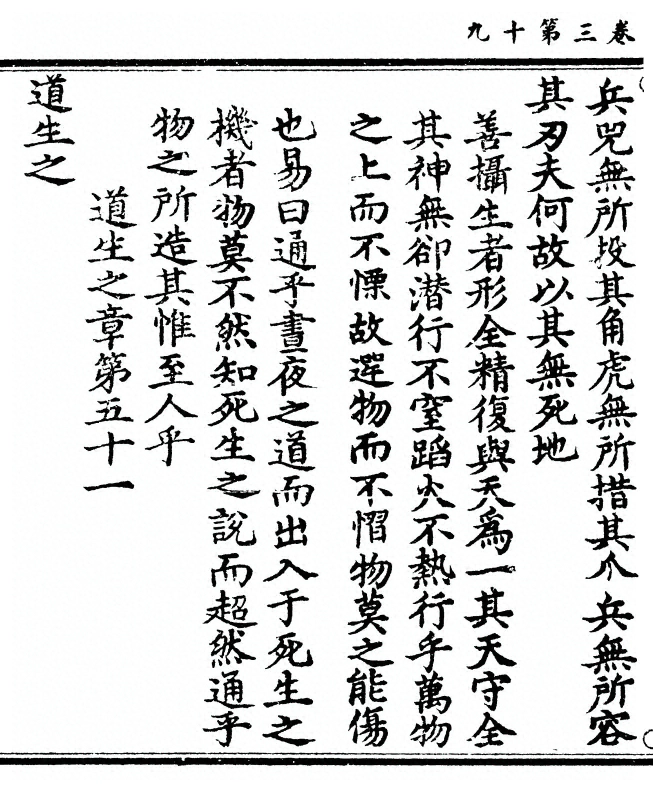 卷三第十九
兵兕無所投其角虎無所措其爪兵無所容
其刃夫何故以其無死地
善攝生者形全精復與天為一其天守全
其神無卻潛行不窒蹈火不熱行乎萬物
之上而不慄故遻物而不慴物莫之能傷
也易曰通乎晝夜之道而出入于死生之
機者物莫不然知死生之說而超然通乎
物之所造其惟至人乎
道生之章第五十一
道生之